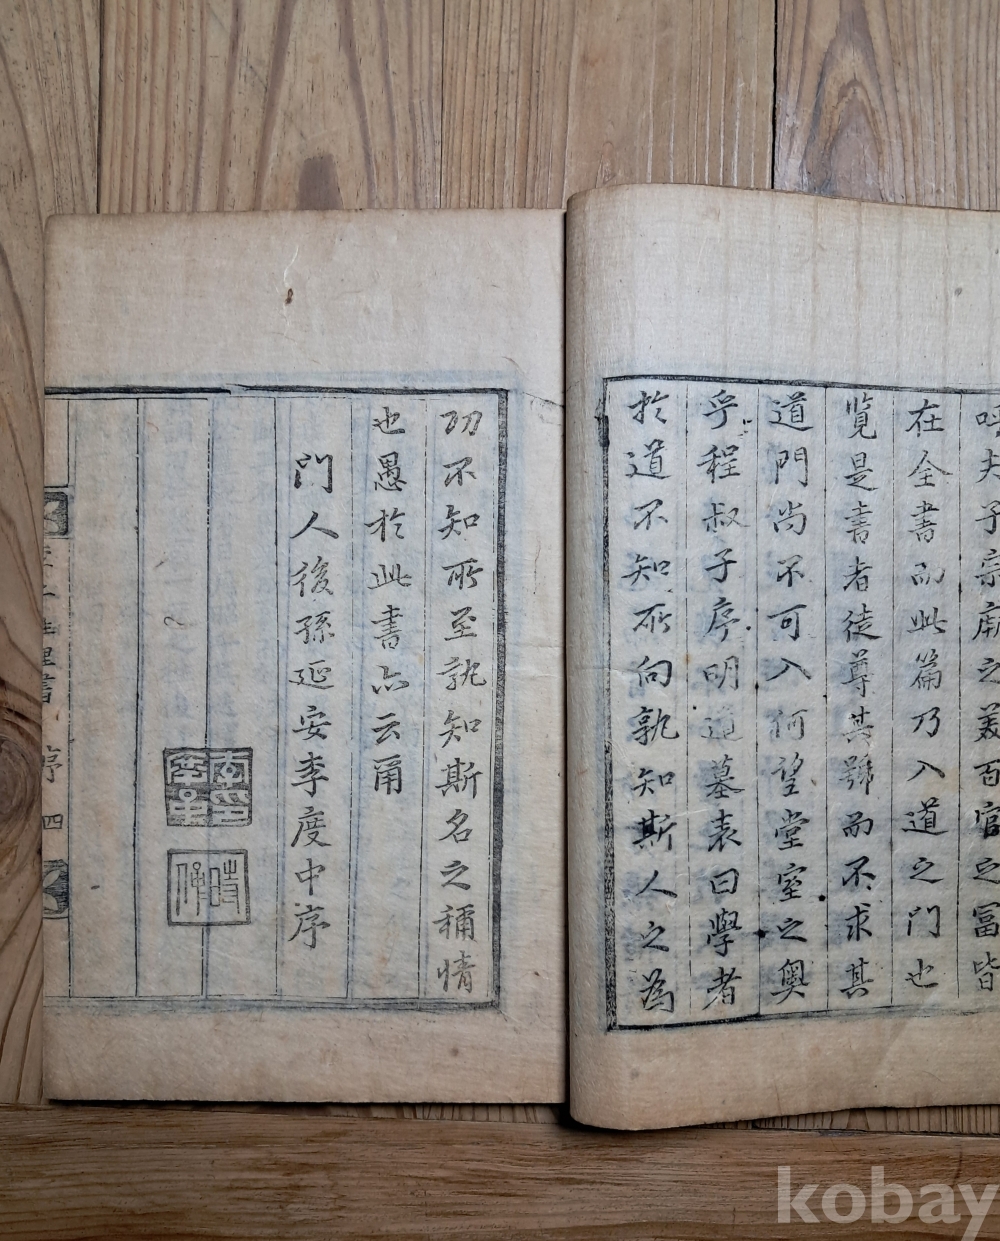 呼夫子宗廟之美百官之富皆
在全書而此篇乃入道之門也
覽是書者徒尊其號而不求其
道門尚不可入何望堂室之奧
乎程叔子序明道墓表曰學者
於道不知所向孰知斯人之為
功不知所至孰知斯名之稱情
也愚於此書亦云爾
門人後孫延安李度中序
序 四
kobay